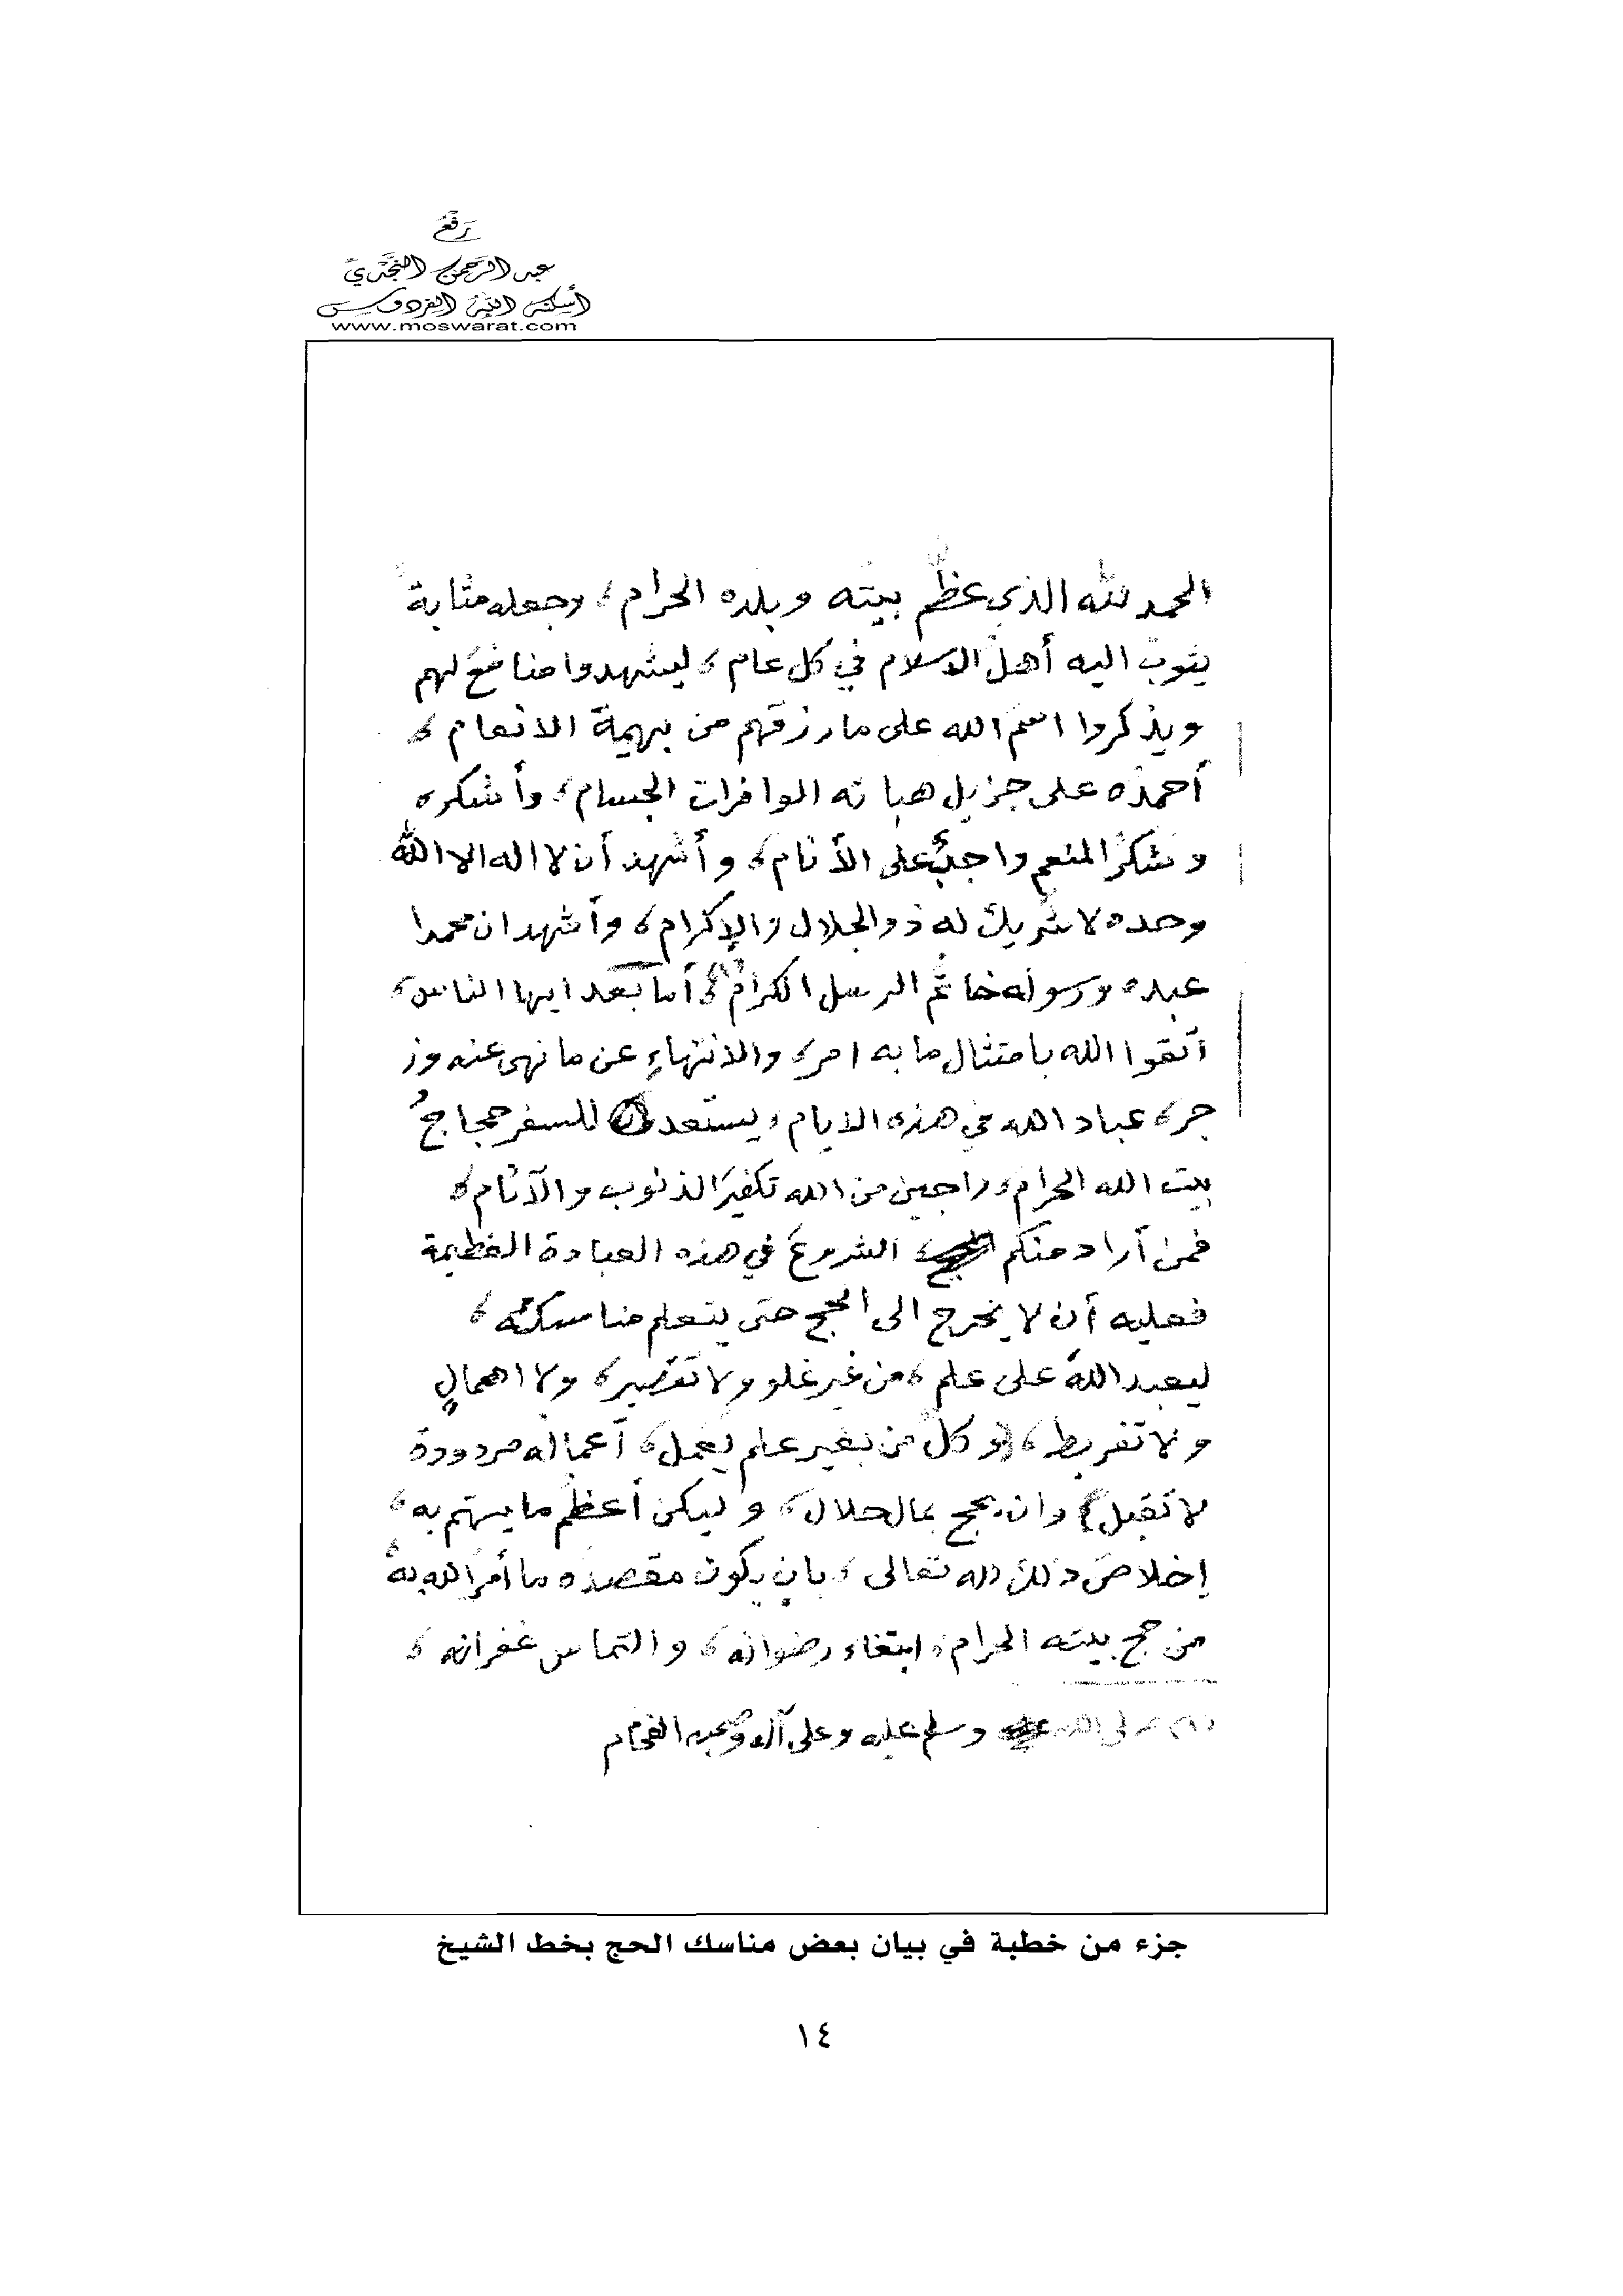 رفع
عبد الرحمن النجدي
أسكنه الله الفردوس
www.moswarat.com
الحمد لله الذي عظَّم بيته وبلده الحرام، وجعله مثابة
يثوب اليه أهل الاسلام في كل عام، ليشهدوا منافعَ لهم
ويذكروا اسم الله على ما رزقهم من بهيمة الانعام،
أحمده على جزيل هباته الوافرات الجسام، وأشكره
وشكرُ المنعم واجبٌ على الأنام، وأشهد أن لا اله الا الله
وحده لا شريك له ذو الجلال والإكرام، وأشهد ان محمدا
عبده ورسوله خاتم الرسل الكرام (١)، أما بعد ايها الناس،
اتقوا الله بامتثال ما به امر، والانتهاءِ عن ما نهى عنه وز
جر، عباد الله في هذه الايام، يستعد للسفر حجاجُ
بيت الله الحرام، راجين من الله تكفيرَ الذنوب والآثام،
فمن أراد منكم الشروعَ في هذه العبادة العظيمة
فعليه أن لا يخرج الى الحج حتى يتعلم مناسكه،
ليعبد اللهَ على علم، من غير غلو ولا تقصير، ولا اهمالٍ
ولا تفريط، (وكل من بغير علم يعمل، أعماله مردودة
لا تقبل) وان يحج بمال حلال، وليكن أعظم ما يهتم به،
إخلاصَ ذلك لله تعالى، بان يكون مقصده ما أمر الله به
من حج بيته الحرام، ابتغاء رضوانه، والتماس غفرانه،
(١) صلى الله وسلم عليه وعلى آله وصحبه الفخام
جزء من خطبة في بيان بعض مناسك الحج بخط الشيخ
١٤